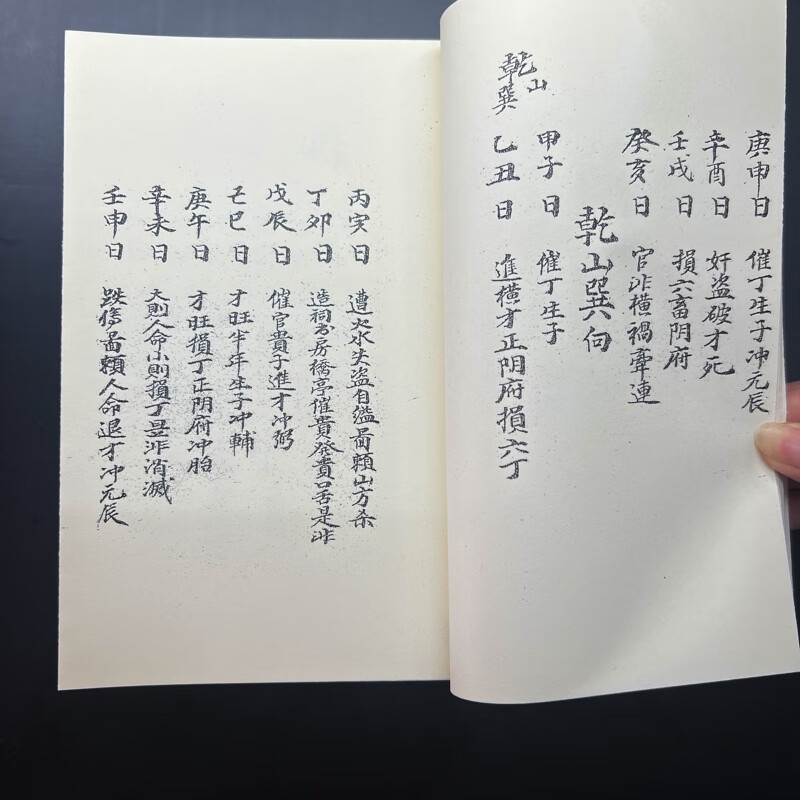 庚申日 催丁生子冲元辰
辛酉日 奸盗破才死
壬戌日 損六畜阴府
癸亥日 官非横禍牽連
乾山巽向
甲子日 催丁生子
乙丑日 進横才正阴府損六丁
乾山
巽
丙寅日 遭火水失盗自缢 頼山方杀
丁卯日 造祠书房橋亭催貴發貴口舌是非
戊辰日 催官貴子進才冲弼
己巳日 才旺半年生子冲輔
庚午日 才旺損丁正阴府冲胎
辛未日 大則人命小則損丁 非消滅
壬申日 跌傷 頼人命退才冲元辰